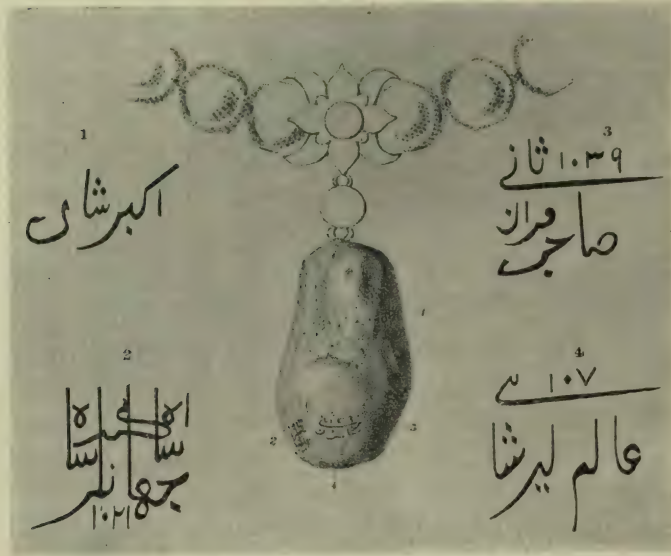 1
اکبر شای
2
جهانگیر
شاه
اکبر
شاه
۱۰۲۱
3
ثانی ۱۰۳۹
صاحب قران
4
۱۰۷
عالم گیر شا